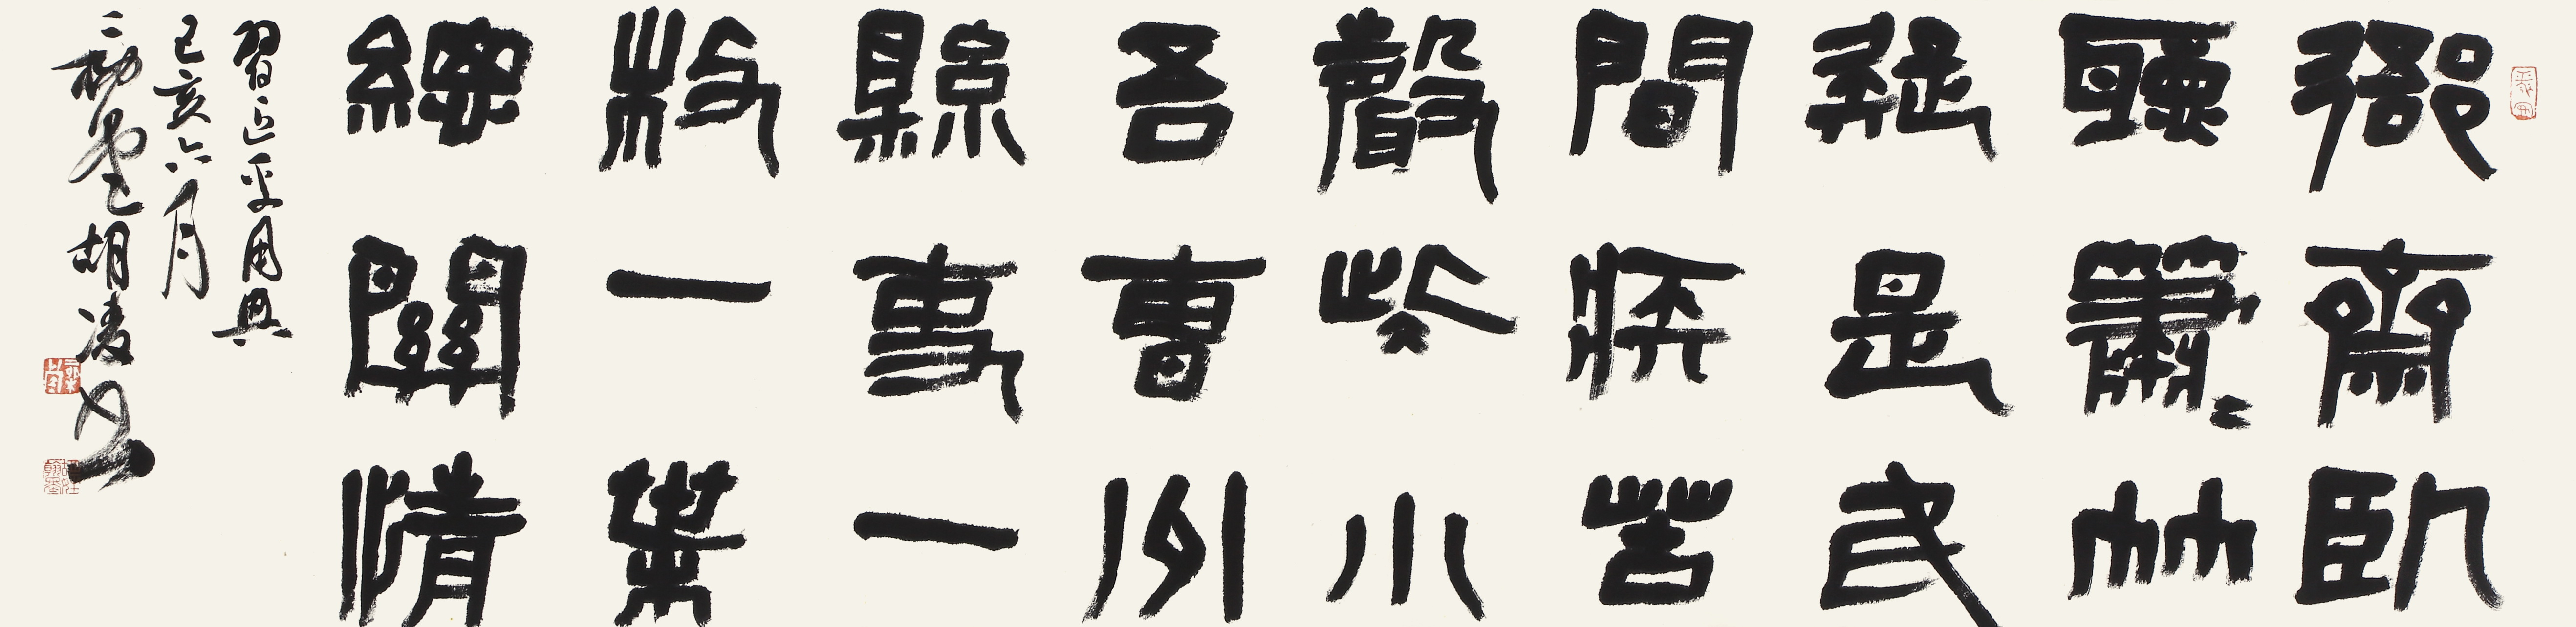 衙齋臥
聽蕭〻竹
疑是民
間疾苦
聲些小
吾曹州
縣吏一
枝一葉
總關情
習近平用典
己亥六月
胡凌書